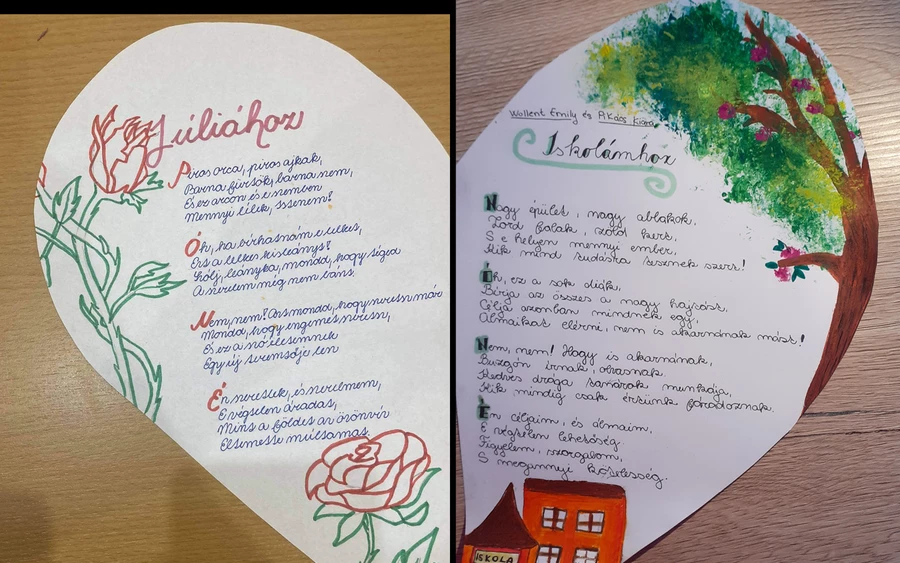 Júliához
Piros orcai, piros ajkak,
Barna fürtök, barna nem,
És ez arcon és e nemben
Mennyi lélek, istenem!
Óh, ha bírhatnám e lelket,
Ezt a lelket kisleányt?
Szólj, leányka, mondd, hogy
A szerelem még nem bánt.
Nem, nem! Azt mondd, hogy már
Mondd, hogy engemet
És ez a nő életemnek
Egy új teremtője len
Én szeretlek, és szerelmem,
E végtelen áradat,
Mint a földet az özönvíz
Eltemette múltamat.
Wollent Emily és Pikács Kiara
Iskolámhoz
Nagy épület, nagy ablakok,
Zord falak, zöld kert,
S e helyen mennyi ember,
Kik mind tudásra tesznek szert!
Óh, ez a sok diák,
Bírja az összes a nagy hajszát,
Célja azonban mindnek egy,
Álmaikat elérni, nem is akarnának mást!
Nem, nem! Hogy is akarnának,
Buzgón írnak, olvasnak
Kedves drága tanárok munkája,
Kik mindig csak értünk fáradoznak.
Én céljaim, és álmaim,
E végtelen lehetőség.
Figyelem, szorgalom,
S megannyi kötelesség.
ISKOLA